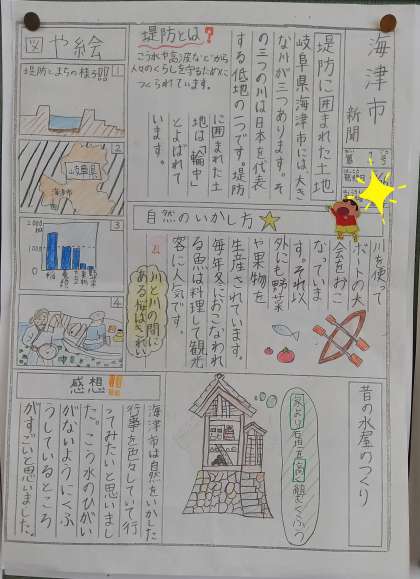 海津市
新聞
堤防に囲まれた土地
岐阜県海津市には大き
な川が三つあります。そ
の三つの川は日本を代表
する低地の一つです。堤防
に囲まれた土
地は「輪中」
とよばれて
います。
堤防とは?
こう水や高潮などから
人々のくらしを守るために
つくられています。
図や絵
堤防とまちの様子
1
2
岐阜県
海津市
3
4
自然のいかし方
川を使って
ボートの大
会をおこ
なっていま
す。それ以
外にも野菜
や果物を
生産されています。
毎年冬におこなわれ
る魚は料理して観光
客に人気です。
川と川の間に
ある桜はきれい
昔の水屋のつくり
家より石垣を高く築くくふう
感想!!
海津市は自然をいかした
行事を色々していて行
ってみたいと思いまし
た。こう水のひがい
がないようにくふ
うしているところ
がすごいと思いました。